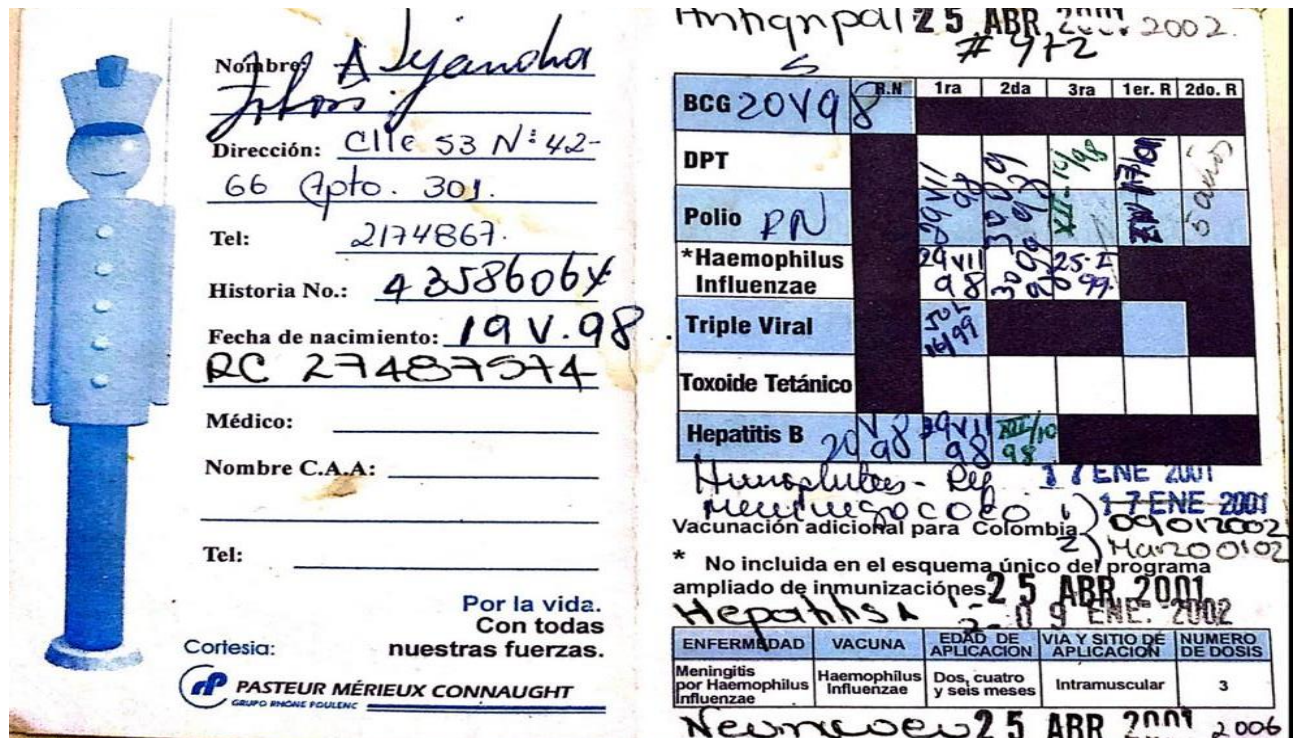 Nombre: Alejandra
Dirección: Clle 53 Nº 42-
66 Apto. 301.
Tel: 2174867.
Historia No.: 43586064
Fecha de nacimiento: 19 V. 98
RC 27487574
Médico:
Nombre C.A.A:
Tel:
Por la vida.
Con todas
nuestras fuerzas.
Cortesia:
PASTEUR MÉRIEUX CONNAUGHT
GRUPO RHONE POULENC
25 ABR. 2001 2002.
# 972
R.N 1ra 2da 3ra 1er. R 2do. R
BCG 20 V 98
DPT
29 VII 98 30 09 98 5 años
Polio RN
*Haemophilus
Influenzae
29 VII 98 30 09 98
Triple Viral
16/99
Toxoide Tetánico
Hepatitis B 20 V 98 29 VII 98 XII/10 98
17 ENE 2001
Meningococo 17 ENE 2001
Vacunación adicional para Colombia
1) 09012002
2)
* No incluida en el esquema único del programa
ampliado de inmunizaciónes
Hepatitis A 1- 25 ABR 2001
2- 09 ENE. 2002
ENFERMEDAD VACUNA EDAD DE APLICACIÓN VIA Y SITIO DE APLICACIÓN NUMERO DE DOSIS
Meningitis por Haemophilus Influenzae Haemophilus Influenzae Dos, cuatro y seis meses Intramuscular 3
25 ABR 2001 2006